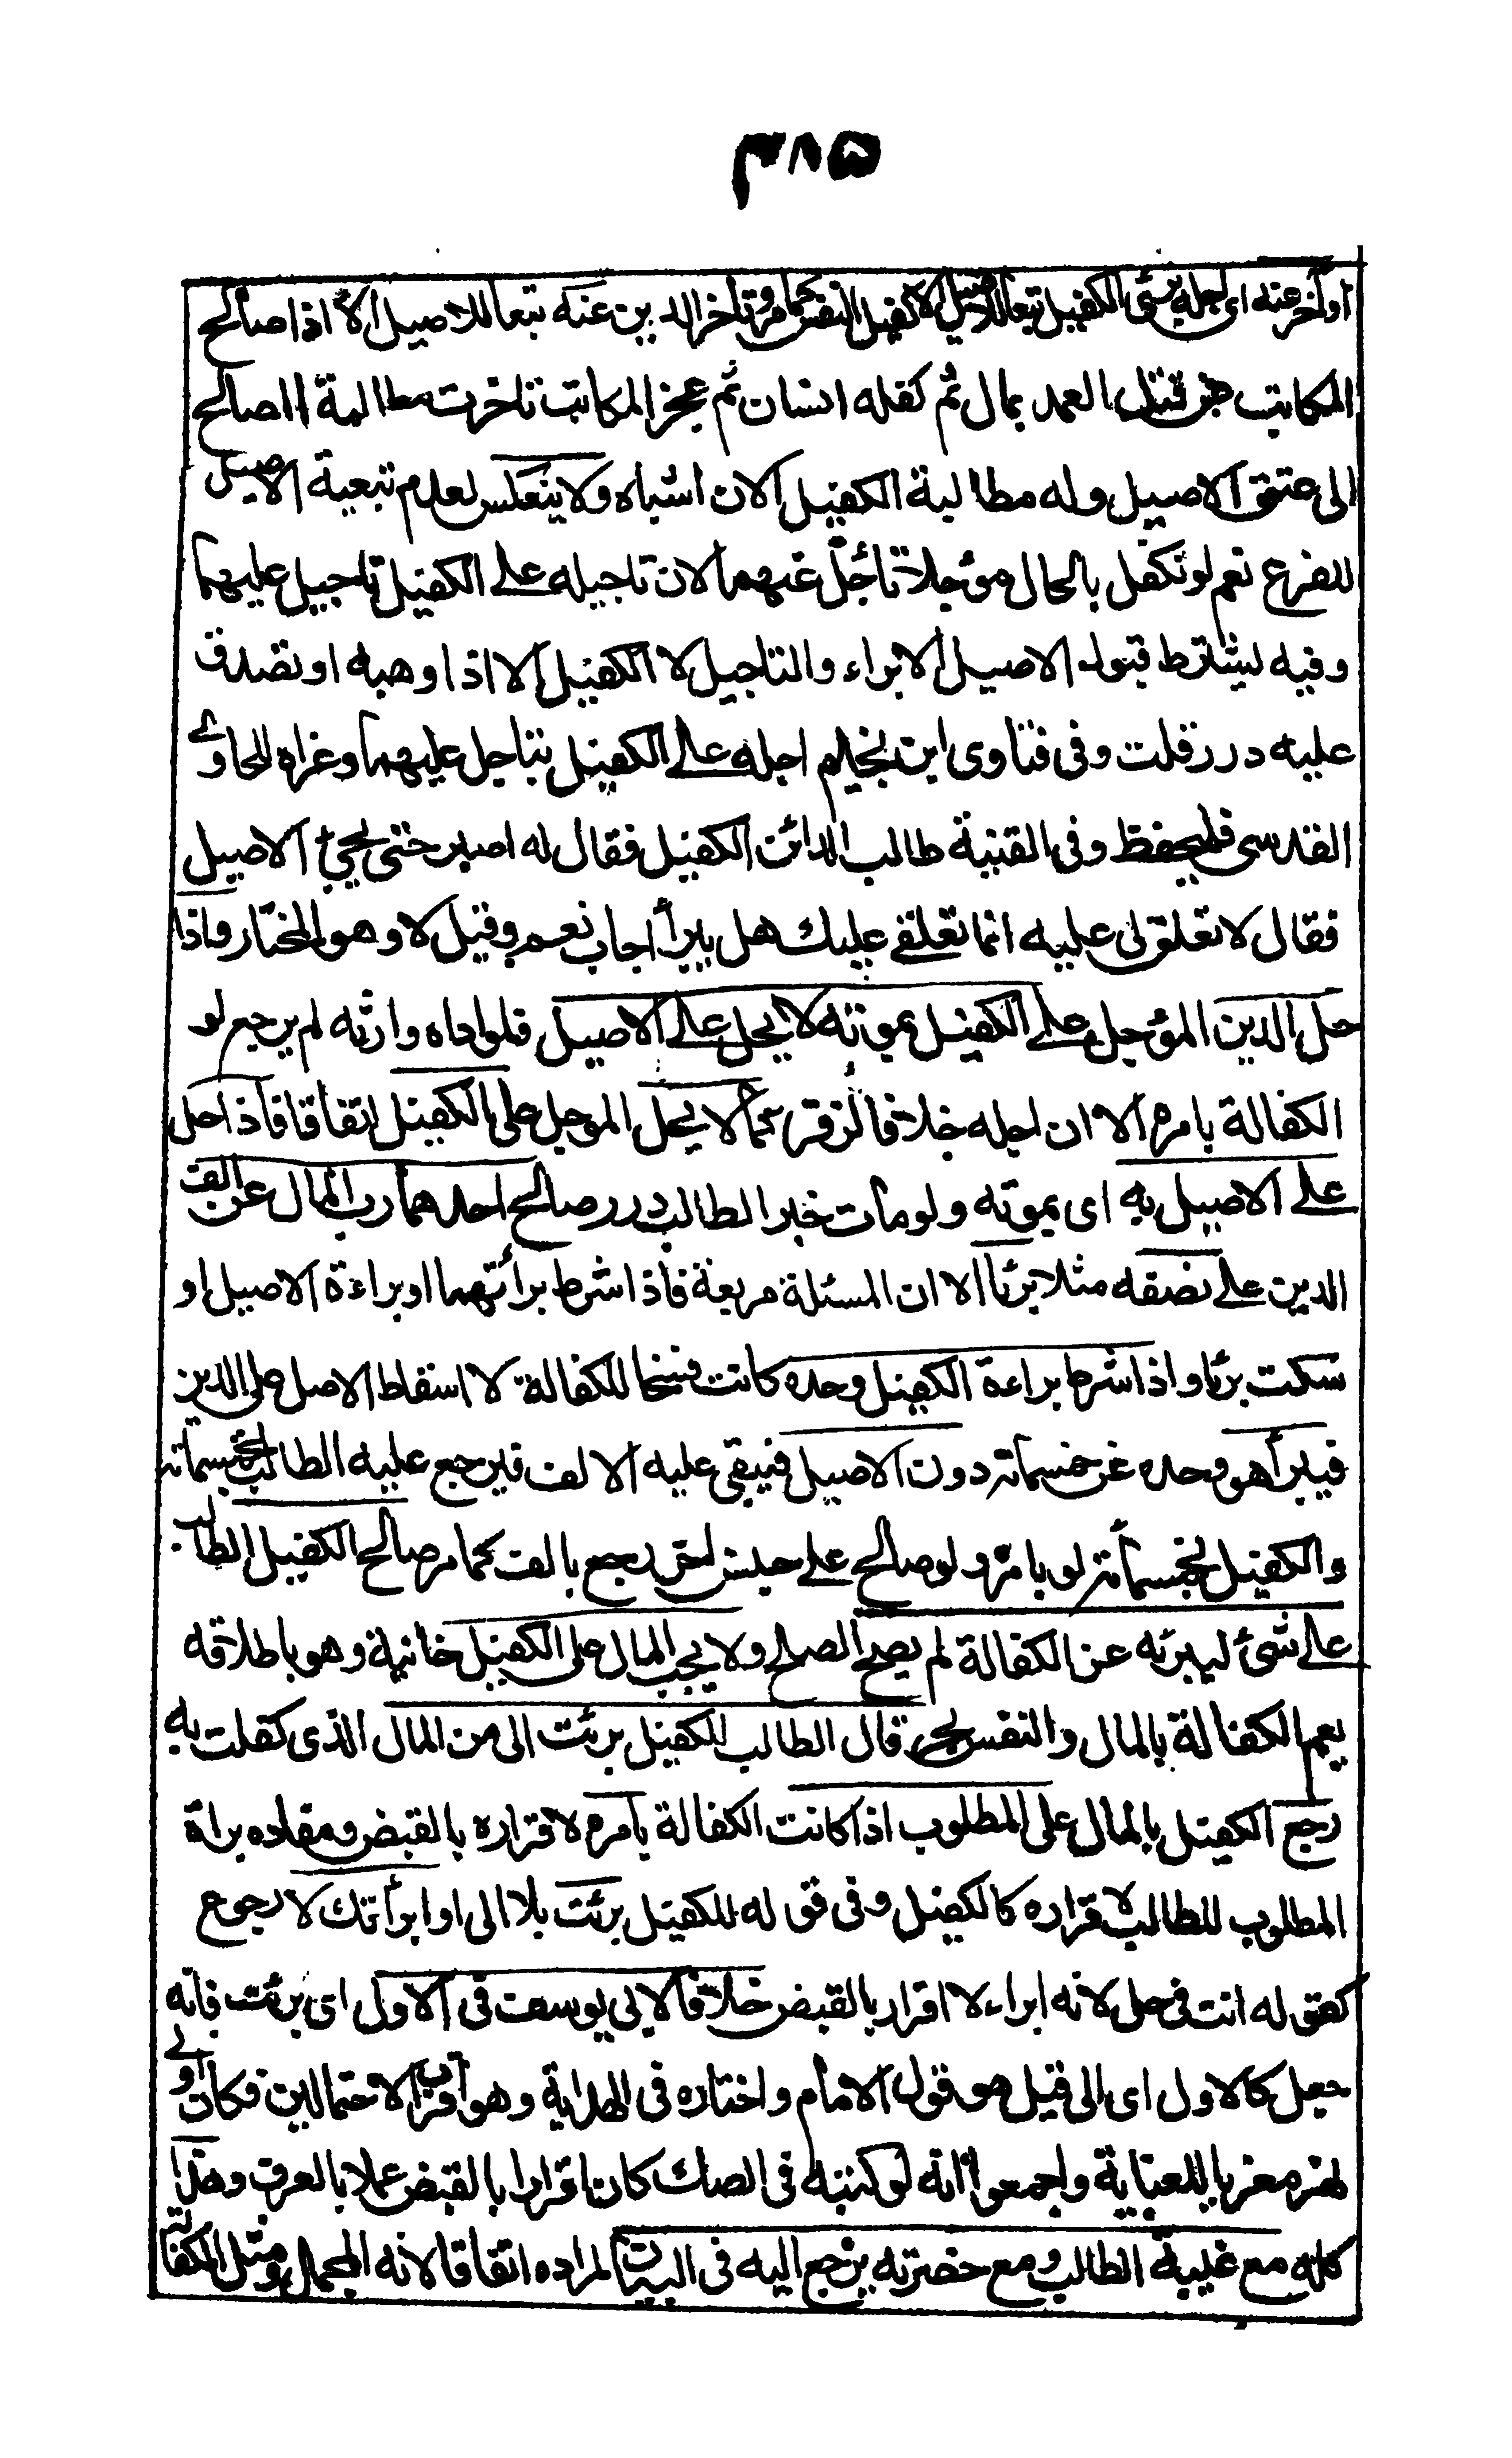 ٣٨٥
او اخر عنه اى اجله برئ الكفيل تبعا للاصيل الا كفيل النفس كما مر وتأخر الدين عنه تبعا للاصيل الا اذا صالح
المكاتب عن قتل العمد بمال ثم كفله انسان ثم عجز المكاتب تاخرت مطالبة المصالح
الى عتق الاصيل وله مطالبة الكفيل الان اشباه ولا ينعكس لعدم تبعية الاصيل
للفرع نعم لو تكفل بالحال مؤجلا تأجل عنهما لان تاجيله على الكفيل تاجيل عليهما
وفيه يشترط قبول الاصيل الابراء والتاجيل لا الكفيل الا اذا وهبه او تصدق
عليه درر قلت وفى فتاوى ابن نجيم اجله على الكفيل يتاجل عليهما وعزاه للحاوى
القدسى فليحفظ وفى القنية طالب الدائن الكفيل فقال له اصبر حتى يجئ الاصيل
فقال لا تعلق لى عليه انما تعلقى عليك هل يبرأ اجاب نعم وقيل لا وهو المختار واذا
حل الدين المؤجل على الكفيل بموته لا يحل على الاصيل فلو اداه وارثه لم يرجع لو
الكفالة بامره الا ان اجله خلافا لزفر كما لا يحل المؤجل على الكفيل اتفاقا فاذا حل
على الاصيل به اى بموته ولو ماتا خير الطالب درر صالح احدهما رب المال عن الف
الدين على نصفه مثلا برئا الا ان المسئلة مربعة فاذا شرط برأتهما او براءة الاصيل او
سكت برئا واذا شرط براءة الكفيل وحده كانت فسخا للكفالة لا اسقاط الاصل على الدين
فيبرأ هو وحده عن خمسمائة دون الاصيل فيبقى عليه الالف فيرجع عليه الطالب بخمسمائة
والكفيل بخمسمائة لو بامره ولو صالح على جنس اخر رجع بالالف كما مر صالح الكفيل الطالب
على شئ ليبرئه عن الكفالة لم يصح الصلح ولا يجب المال على الكفيل خانية وهو باطلاقه
يعم الكفالة بالمال والنفس بحر قال الطالب للكفيل برئت الى من المال الذى كفلت به
رجع الكفيل بالمال على المطلوب اذا كانت الكفالة بامره لاقراره بالقبض ومفاده براة
المطلوب للطالب لاقراره كالكفيل وفى قوله للكفيل برئت بلا الى او ابرأتك لا رجوع
كقوله انت فى حل لانه ابراء لا اقرار بالقبض خلافا لابى يوسف فى الاول اى برئت فانه
جعل كالاول اى الى قيل هو قول الامام واختاره فى الهداية وهو اقرب الاحتمالين فكان اولى
نهر معزيا للعناية واجمعوا انه لو كتبه فى الصك كان اقرارا بالقبض عملا بالعرف وهذا
كله مع غيبة الطالب ومع حضرته يرجع اليه فى البيان لمراده اتفاقا لانه المجمل ومثل الكفالة